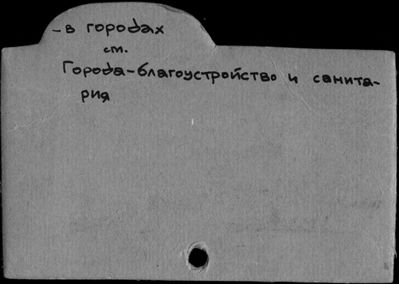 -в городах
см.
Города-благоустройство и санита-
рия